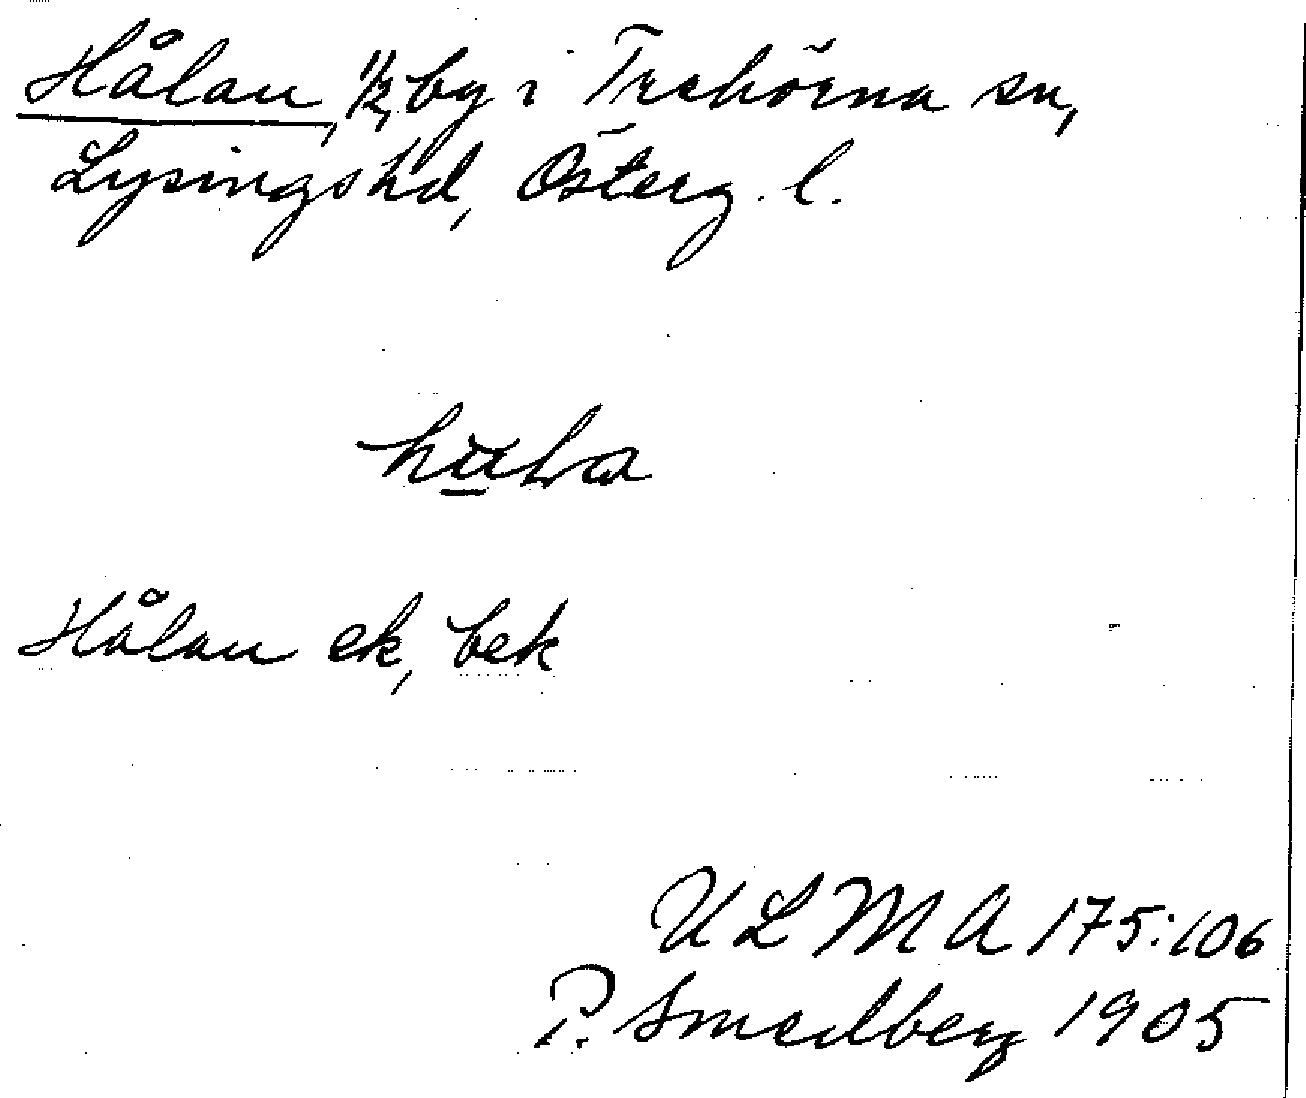 Hålan, 1/2, by i Trehörna sn,
Lysings hd, Österg. l.
Hålan ek, bek
ULMA 175:106
P. Smedberg 1905